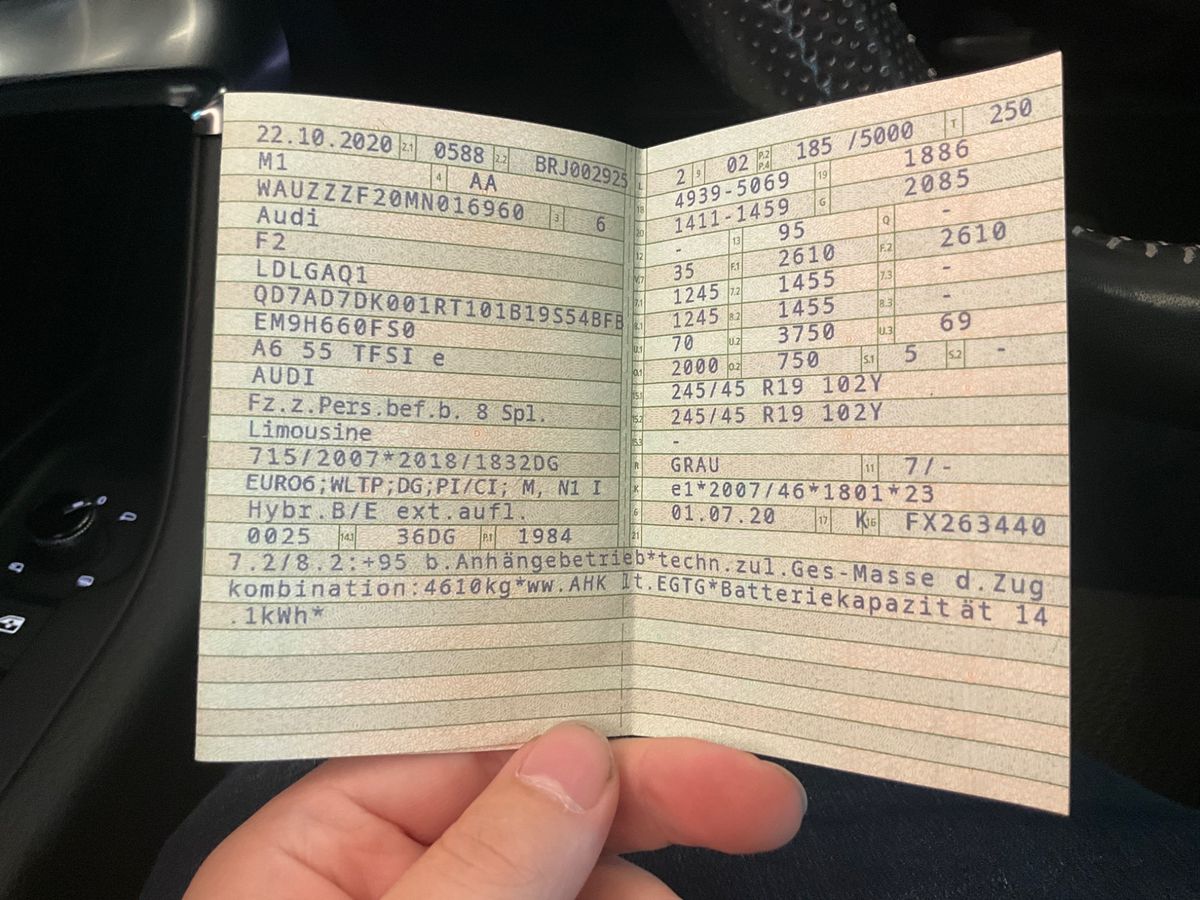 22.10.2020 2.1 0588 2.2 BRJ002925
M1 4 AA
WAUZZZF20MN016960 3 6
Audi
F2
LDLGAQ1
QD7AD7DK001RT101B19S54BFB
EM9H660FS0
A6 55 TFSI e
AUDI
Fz.z.Pers.bef.b. 8 Spl.
Limousine
715/2007*2018/1832DG
EURO6;WLTP;DG;PI/CI; M, N1 I
Hybr.B/E ext.aufl.
0025 14.1 36DG P.1 1984
L 2 9 02 P.2 P.4 185 /5000 T 250
18 4939-5069 19 1886
20 1411-1459 G 2085
12 - 13 95 Q -
V.7 35 F.1 2610 F.2 2610
7.1 1245 7.2 1455 7.3 -
8.1 1245 8.2 1455 8.3 -
U.1 70 U.2 3750 U.3 69
O.1 2000 O.2 750 S.1 5 S.2 -
15.1 245/45 R19 102Y
15.2 245/45 R19 102Y
15.3 -
R GRAU 11 7/-
K e1*2007/46*1801*23
6 01.07.20 17 K 16 FX263440
21
7.2/8.2:+95 b.Anhängebetrieb*techn.zul.Ges-Masse d.Zug
kombination:4610kg*ww.AHK lt.EGTG*Batteriekapazität 14
.1kWh*